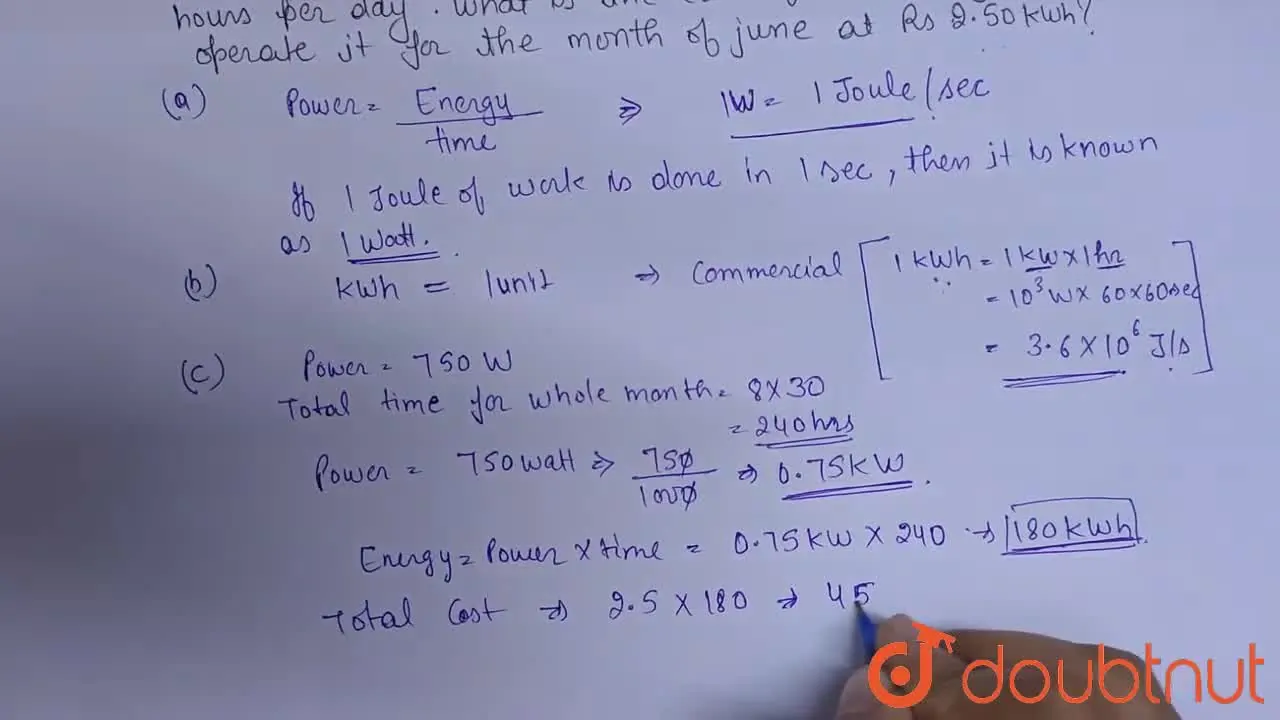 hours per day. What is the
operate it for the month of june at Rs 2.50 kWh?
(a) Power = Energy / time ⇒ 1W = 1 Joule/sec
If 1 Joule of work is done in 1 sec, then it is known
as 1 Watt.
(b) kWh = 1unit → Commercial
[1 kWh = 1 kW x 1 hr
= 10³ W x 60 x 60 sec
= 3.6 x 10⁶ J/s]
(c) Power = 750 W
Total time for whole month = 8 x 30
= 240 hrs
Power = 750 watt ⇒ 750/1000 ⇒ 0.75 KW.
Energy = Power x time = 0.75 kW x 240 → 180 kWh.
Total Cost ⇒ 2.5 x 180 → 45
doubtnut